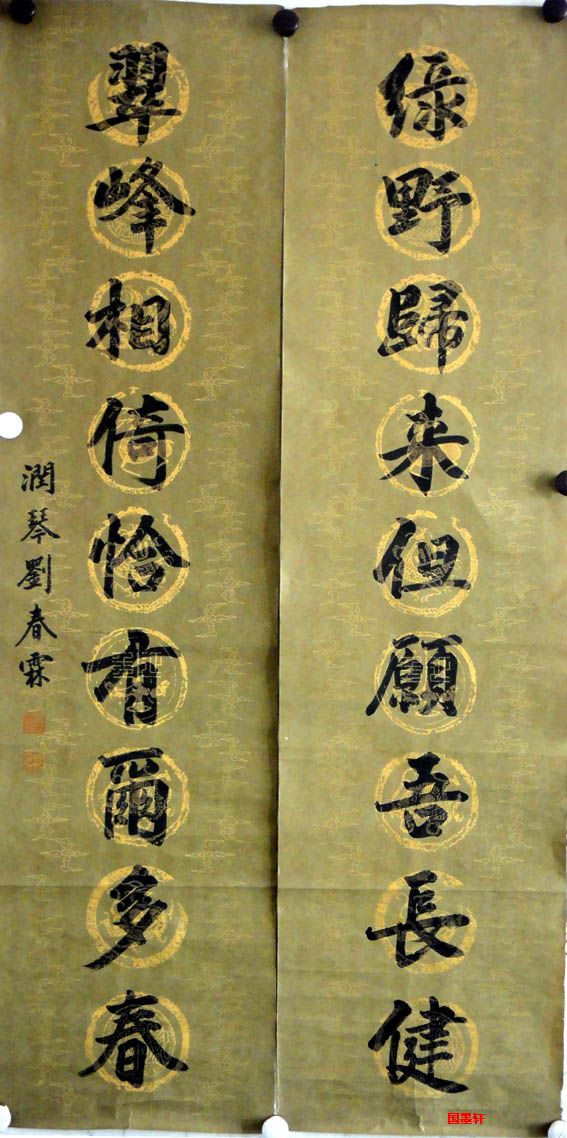 綠野歸来但願吾長健
翠峰相倚恰有爾多春
潤琴劉春霖
国墨轩